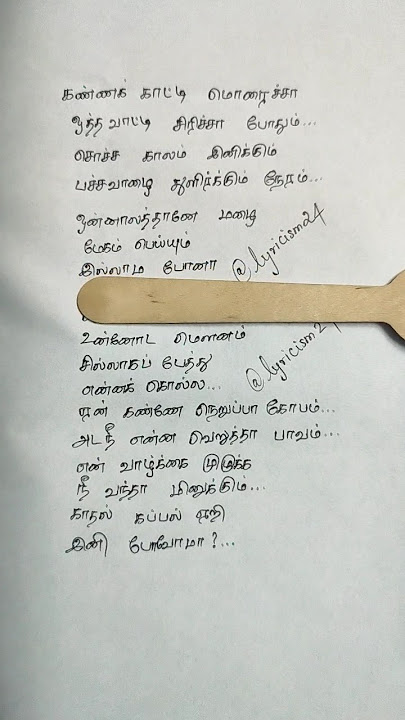 கண்ணக் காட்டி மொறைச்சா
ஒத்த வாட்டி சிரிச்சா போதும்...
சொச்ச காலம் இனிக்கும்
பச்சவாழை துளிர்க்கும் நேரம்...
ஒன்னாலத்தானே மழை
மேகம் பெய்யும்
இல்லாம போனா
@lyricism24
உன்னோட மௌனம்
சில்லாகப் பேத்து
என்னக் கொல்ல...
@lyricism24
ஏன் கண்ணே நெறுப்பா கோபம்...
அட நீ என்ன வெறுத்தா பாவம்...
என் வாழ்க்கை முழுக்க
நீ வந்தா மினுக்கும்...
காதல் கப்பல் ஏறி
இனி போவோமா?...